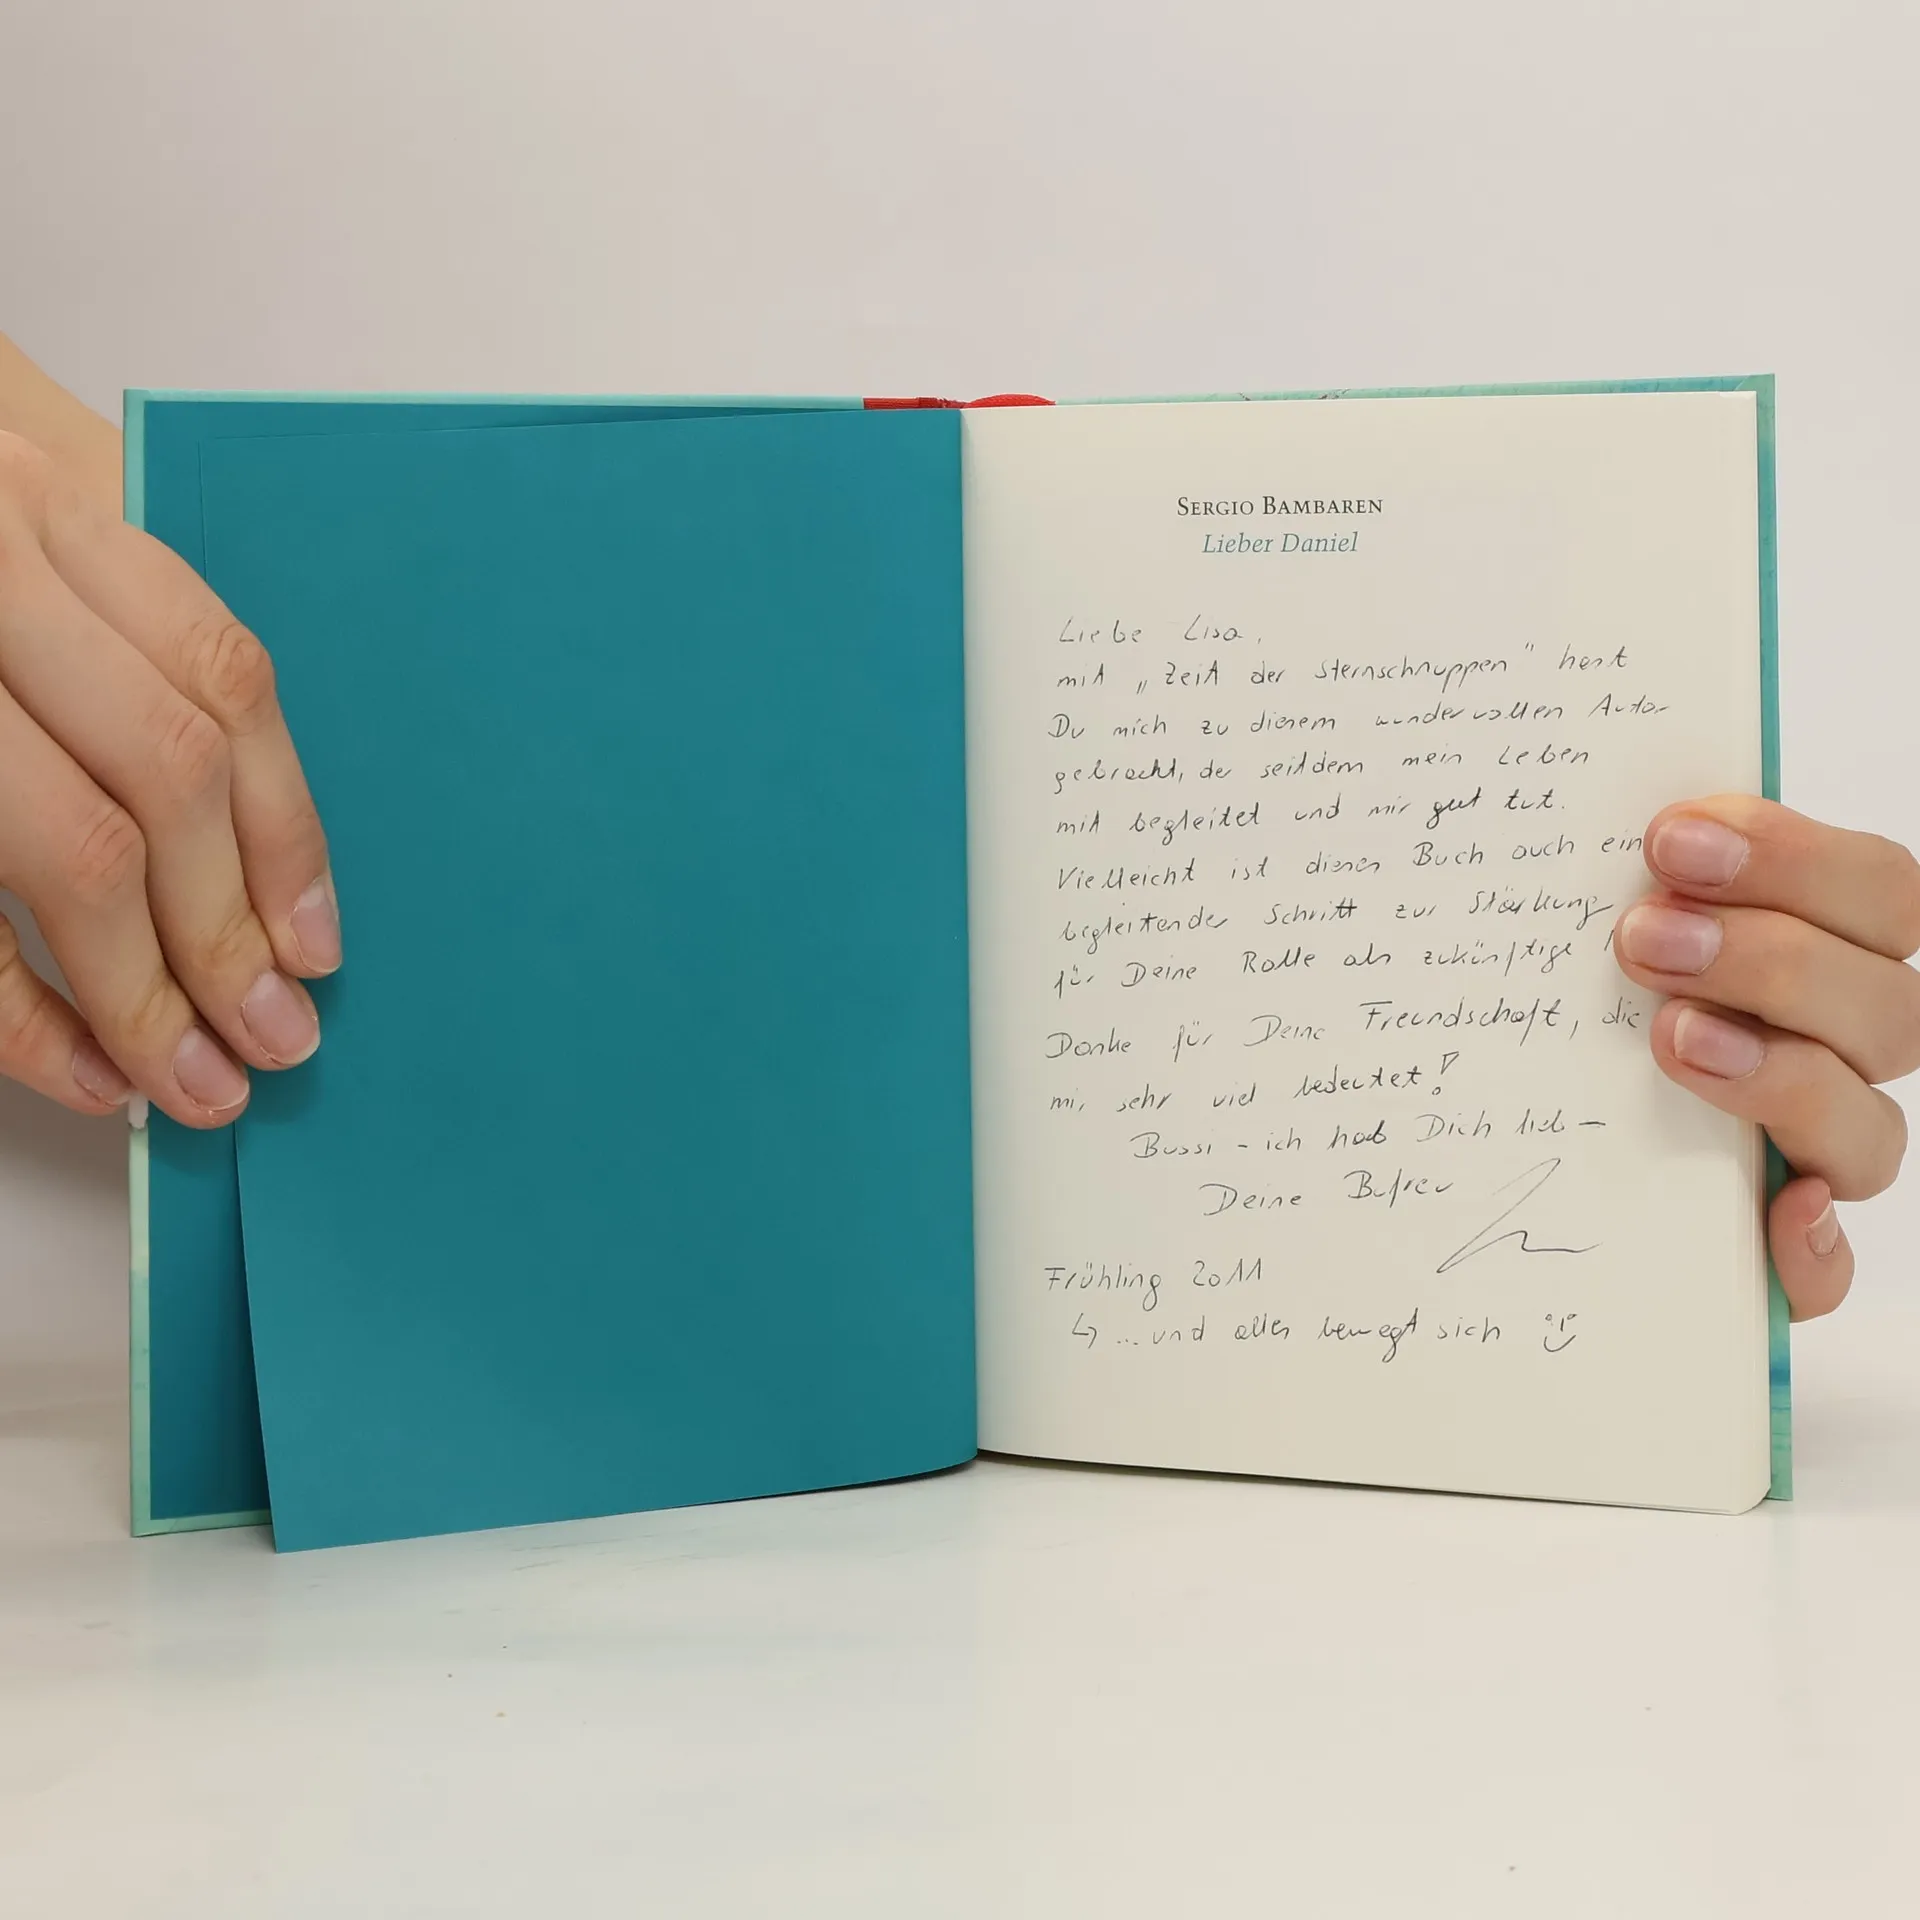 SERGIO BAMBAREN
Lieber Daniel
Liebe Lisa,
mit „Zeit der Sternschnuppen" hast
Du mich zu diesem wundervollen Autor
gebracht, der seitdem mein Leben
mit begleitet und mir gut tut.
Vielleicht ist dieses Buch auch ein
begleitender Schritt zur Stärkung
für Deine Rolle als zukünftige
Danke für Deine Freundschaft, die
mir sehr viel bedeutet!
Bussi - ich hab Dich lieb -
Deine Bufreu
Frühling 2011
↳ ... und alles bewegt sich